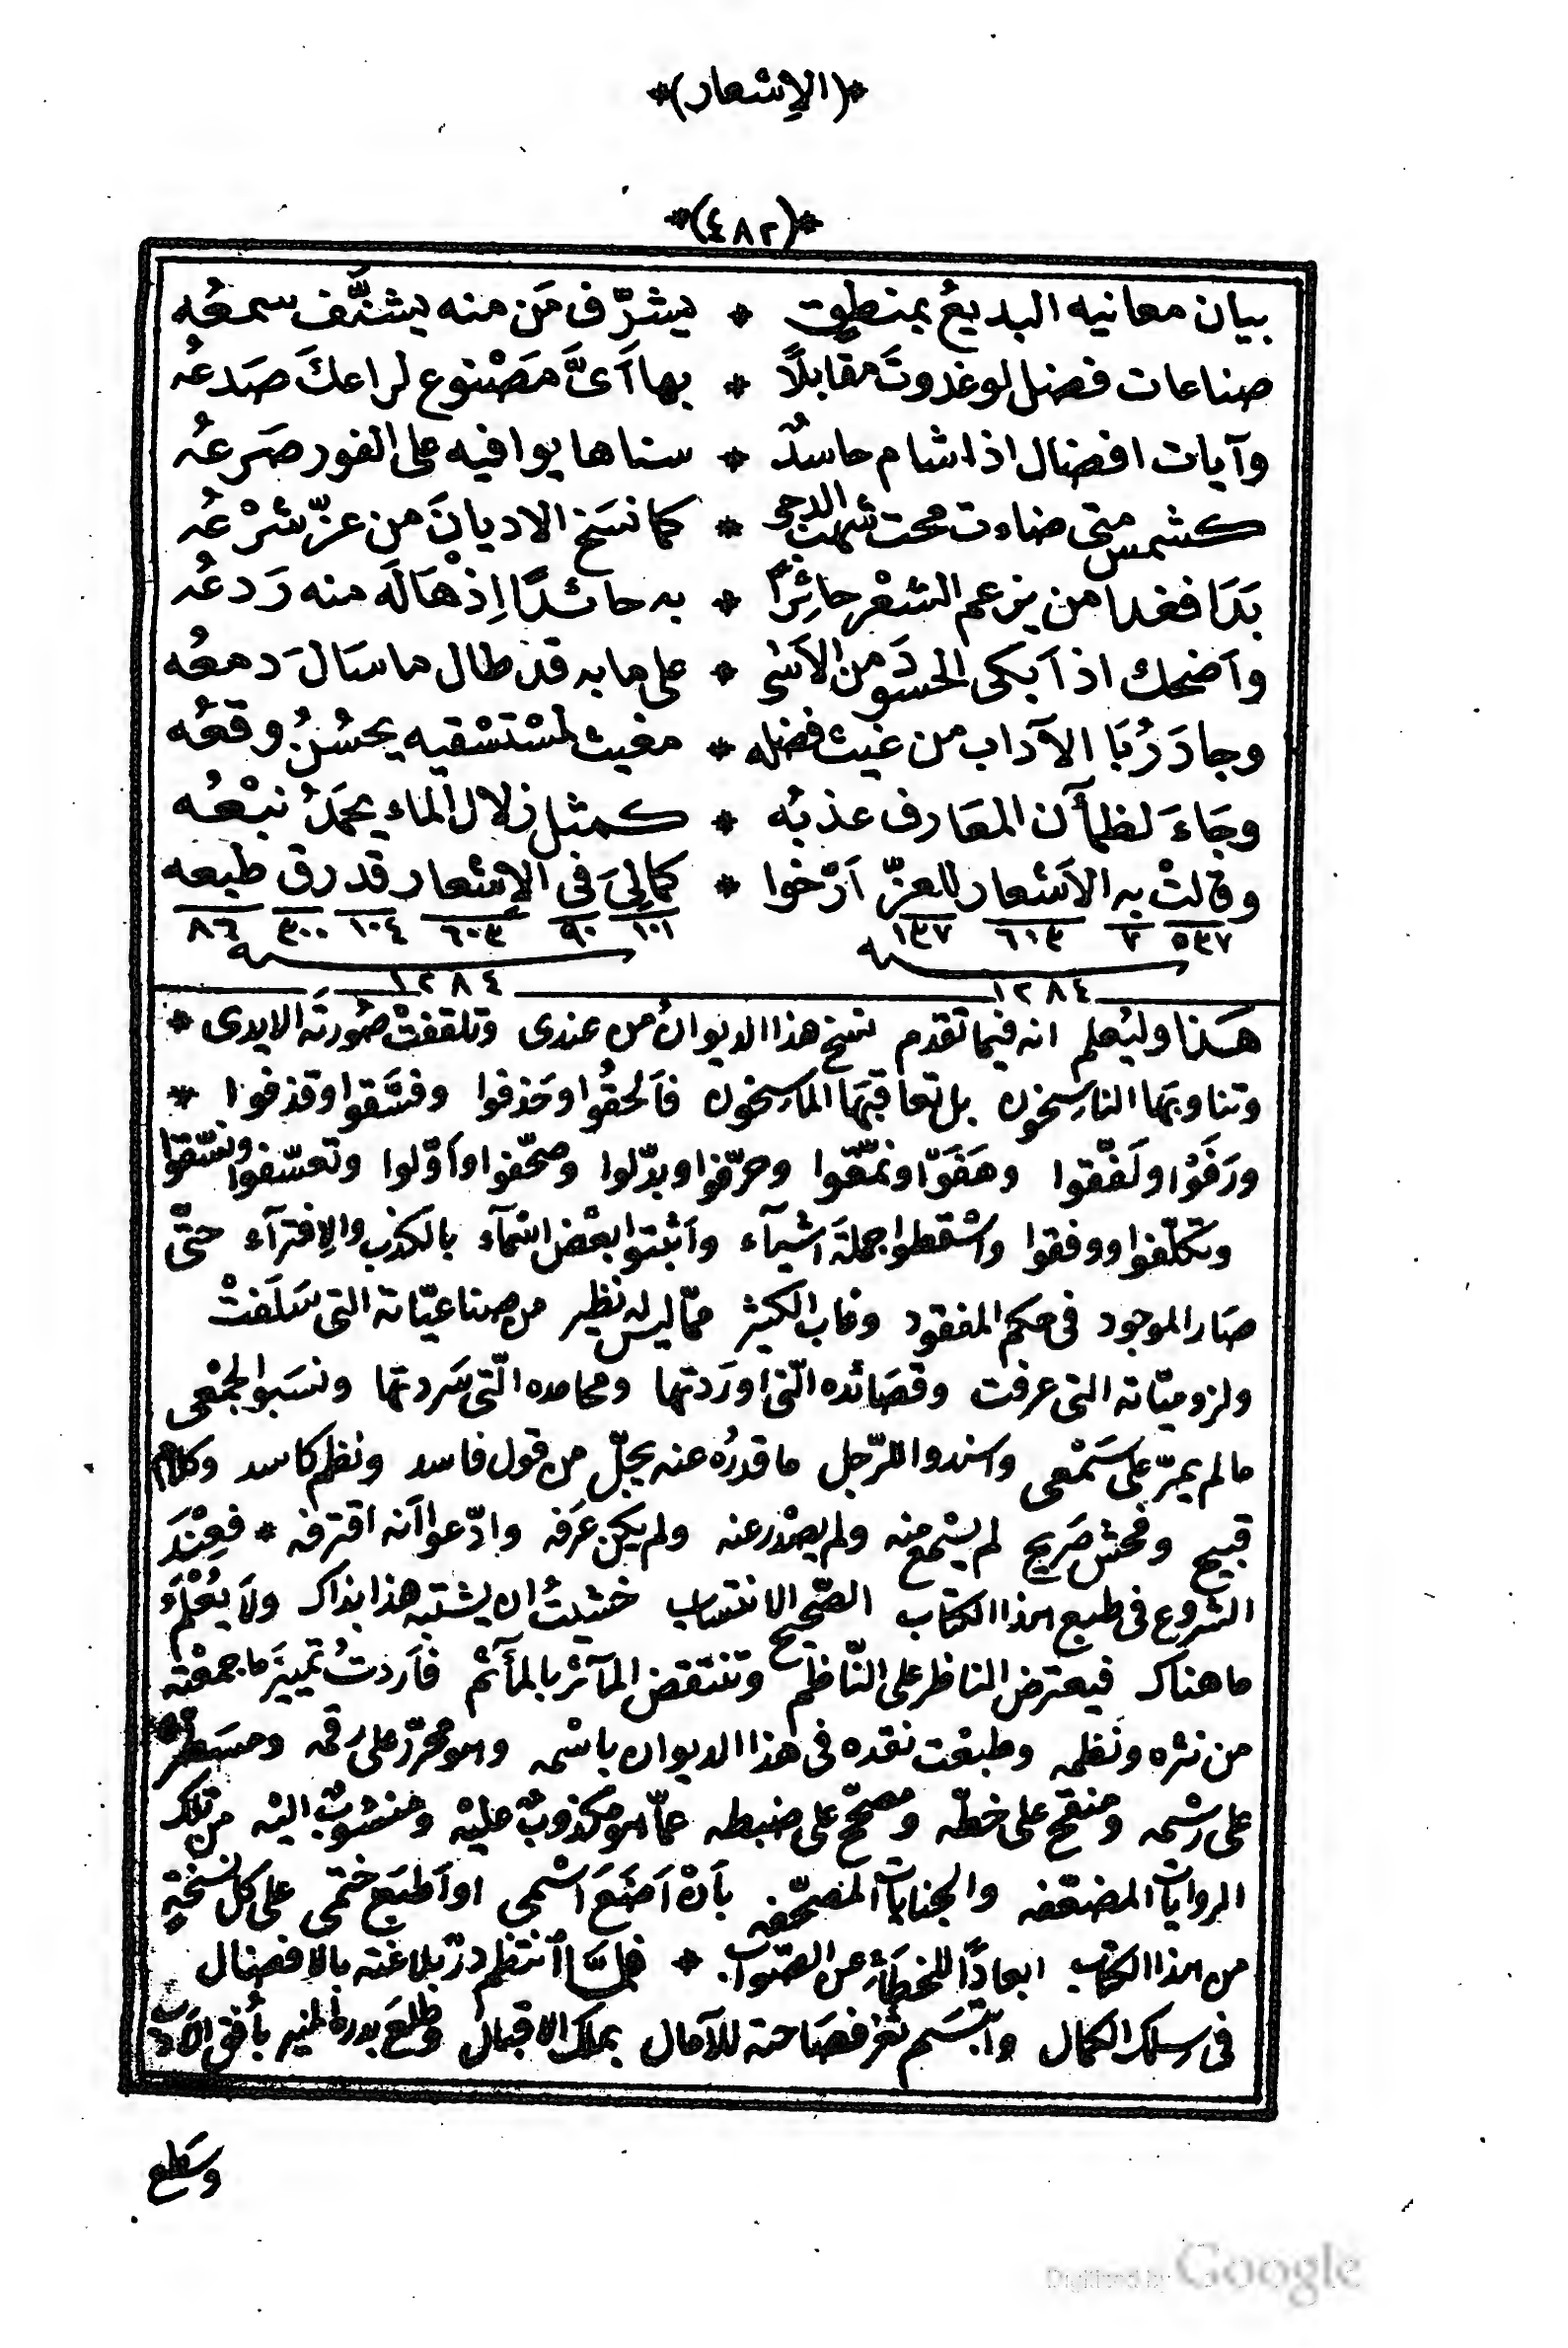 *(الإشعار)*
*(٤٨٢)*
بيان معانيه البديعُ بمنطقٍ * يشرّف مَن منه يشنَّف سمعُه
صناعات فضل لو غدوتَ مقابلًا * بها اَىَّ مَصْنوع لراعكَ صَدعُه
وآيات افضال اذا شام حاسدٌ * سناها يوافيه على الفور صَرعُه
كشمس متى ضاءت محت شبهَ الدجى * كما نسَخ الاديانَ من عزّ شرْعُه
بَدَا فغدا من يزعم الشعْر حائِرًا * به حائدًا اِذْ هَالَه منه رَدعُه
واَضحك اذ اَبكى الحسودَ من الاَسَى * على ما به قد طال ما سَالَ دمعُه
وجادَ رُبَا الآداب من غيث فضله * مغيث لمسْتسْقيه يحسُنُ وقعُه
وجَاءَ لظمأن المعَارف عذبُه * كمثل زلال الماء يحمَدُ نبْعُه
وقالتْ به الاَشعار للعزّ اَرّخوا * كمالِىَ فى الإشعار قد رق طبعه
٥٣٧ ٧ ٦١٣ ١٣٧ ١٠١ ٩٠ ٦٠٣ ١٠٤ ٣٠٠ ٨٦
١٢٨٤ ١٢٨٤
هَذا وليُعلم انه فيما تقدم نسخ هذا الديوانُ من عندى وتلقفتْ صُورتَه الايدى *
وتناوبتها الناسِخون بل تعاقبتها الماسِخون فاَلحقُوا وحَذفوا وفسَّقوا وقذفوا *
ورَفَوْا ولَفّقوا وهَفَوْا ونمّقوا وحرّفوا وبدّلوا وصحّفوا واَوّلوا وتعسّفوا ونسّقوا
وتكلّفوا ووفقوا واسْقطوا جملَة اشيآء واَثبتوا بعْض اسْمآء بالكذب والإفترآء حتّى
صَار الموجود فى حكم المفقود وغاب الكثير ممّا ليس له نظير من صناعيّاته التى سَلَفتْ
ولزوميّاته التى عرفت وقصَائده الّتى اورَدتها ومحامده الّتى سَردتها ونسَبوا لجمْعى
ما لم يمرّ على سَمْعى واسندوا للرّجل ما قدرُه عنه يجلّ من قول فاسد ونظم كاسد وكلام
قبيح وفحش صَريح لم يسْمع منه ولم يصْدر عنه ولم يكن عَرَفه وادّعوا اَنه اقترفه * فعِنْدَ
الشروع فى طبع هذا الكتاب الصّحيح الانتساب خشيتُ ان يشتبه هذا بذاك ولاَ يُعْلَمَ
ما هناك فيعترض الناظر على النّاظم وتنتقض المآثر بالمأثم فاَردتُ تمييزَ ما جمعْته
من نثره ونَظمه وطبعْت نقده فى هذا الديوان باسْمه وهو محرّر على رقمه ومسَطر
على رسْمه ومنقح على خطّه ومصحّح على ضبطه عمّا هو مكذوبٌ عليْه ومنسُوبٌ اليْه من تلك
الروايات المضعّفه والجنايات المصحّفه بأنْ اَضَعَ اسْمى او اَطبَع ختمى على كل نسْخةٍ
من هذا الكتاب ابعادًا للخطأ عن الصّواب * فلمَّا انتظم درّ بلاغته بالافضال
فى سِلك الكمال وابْتسَم ثغر فصَاحته للآمال بملك الاقبال وطلعَ بدره المنير بأفق الآداب
وسَطع